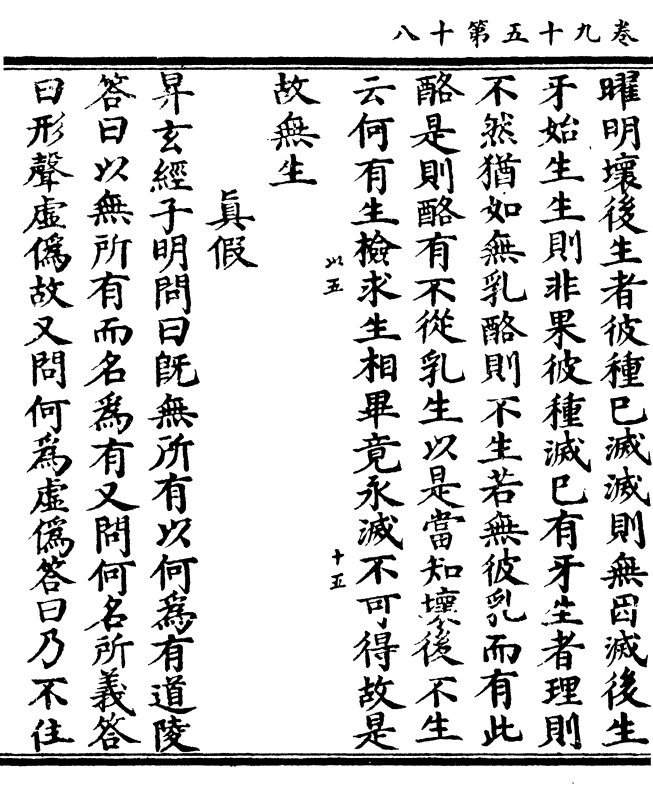 卷九十五第十八
曜明壞後生者彼種已滅滅則無因滅後生
牙始生生則非果彼種滅已有牙生者理則
不然猶如無乳酪則不生若無彼乳而有此
酪是則酪有不從乳生以是當知壞後不生
云何有生檢求生相畢竟永滅不可得故是
以五
十五
故無生
真假
昇玄經子明問曰既無所有以何為有道陵
答曰以無所有而名為有又問何名所義答
曰形聲虛偽故又問何為虛偽答曰乃不住